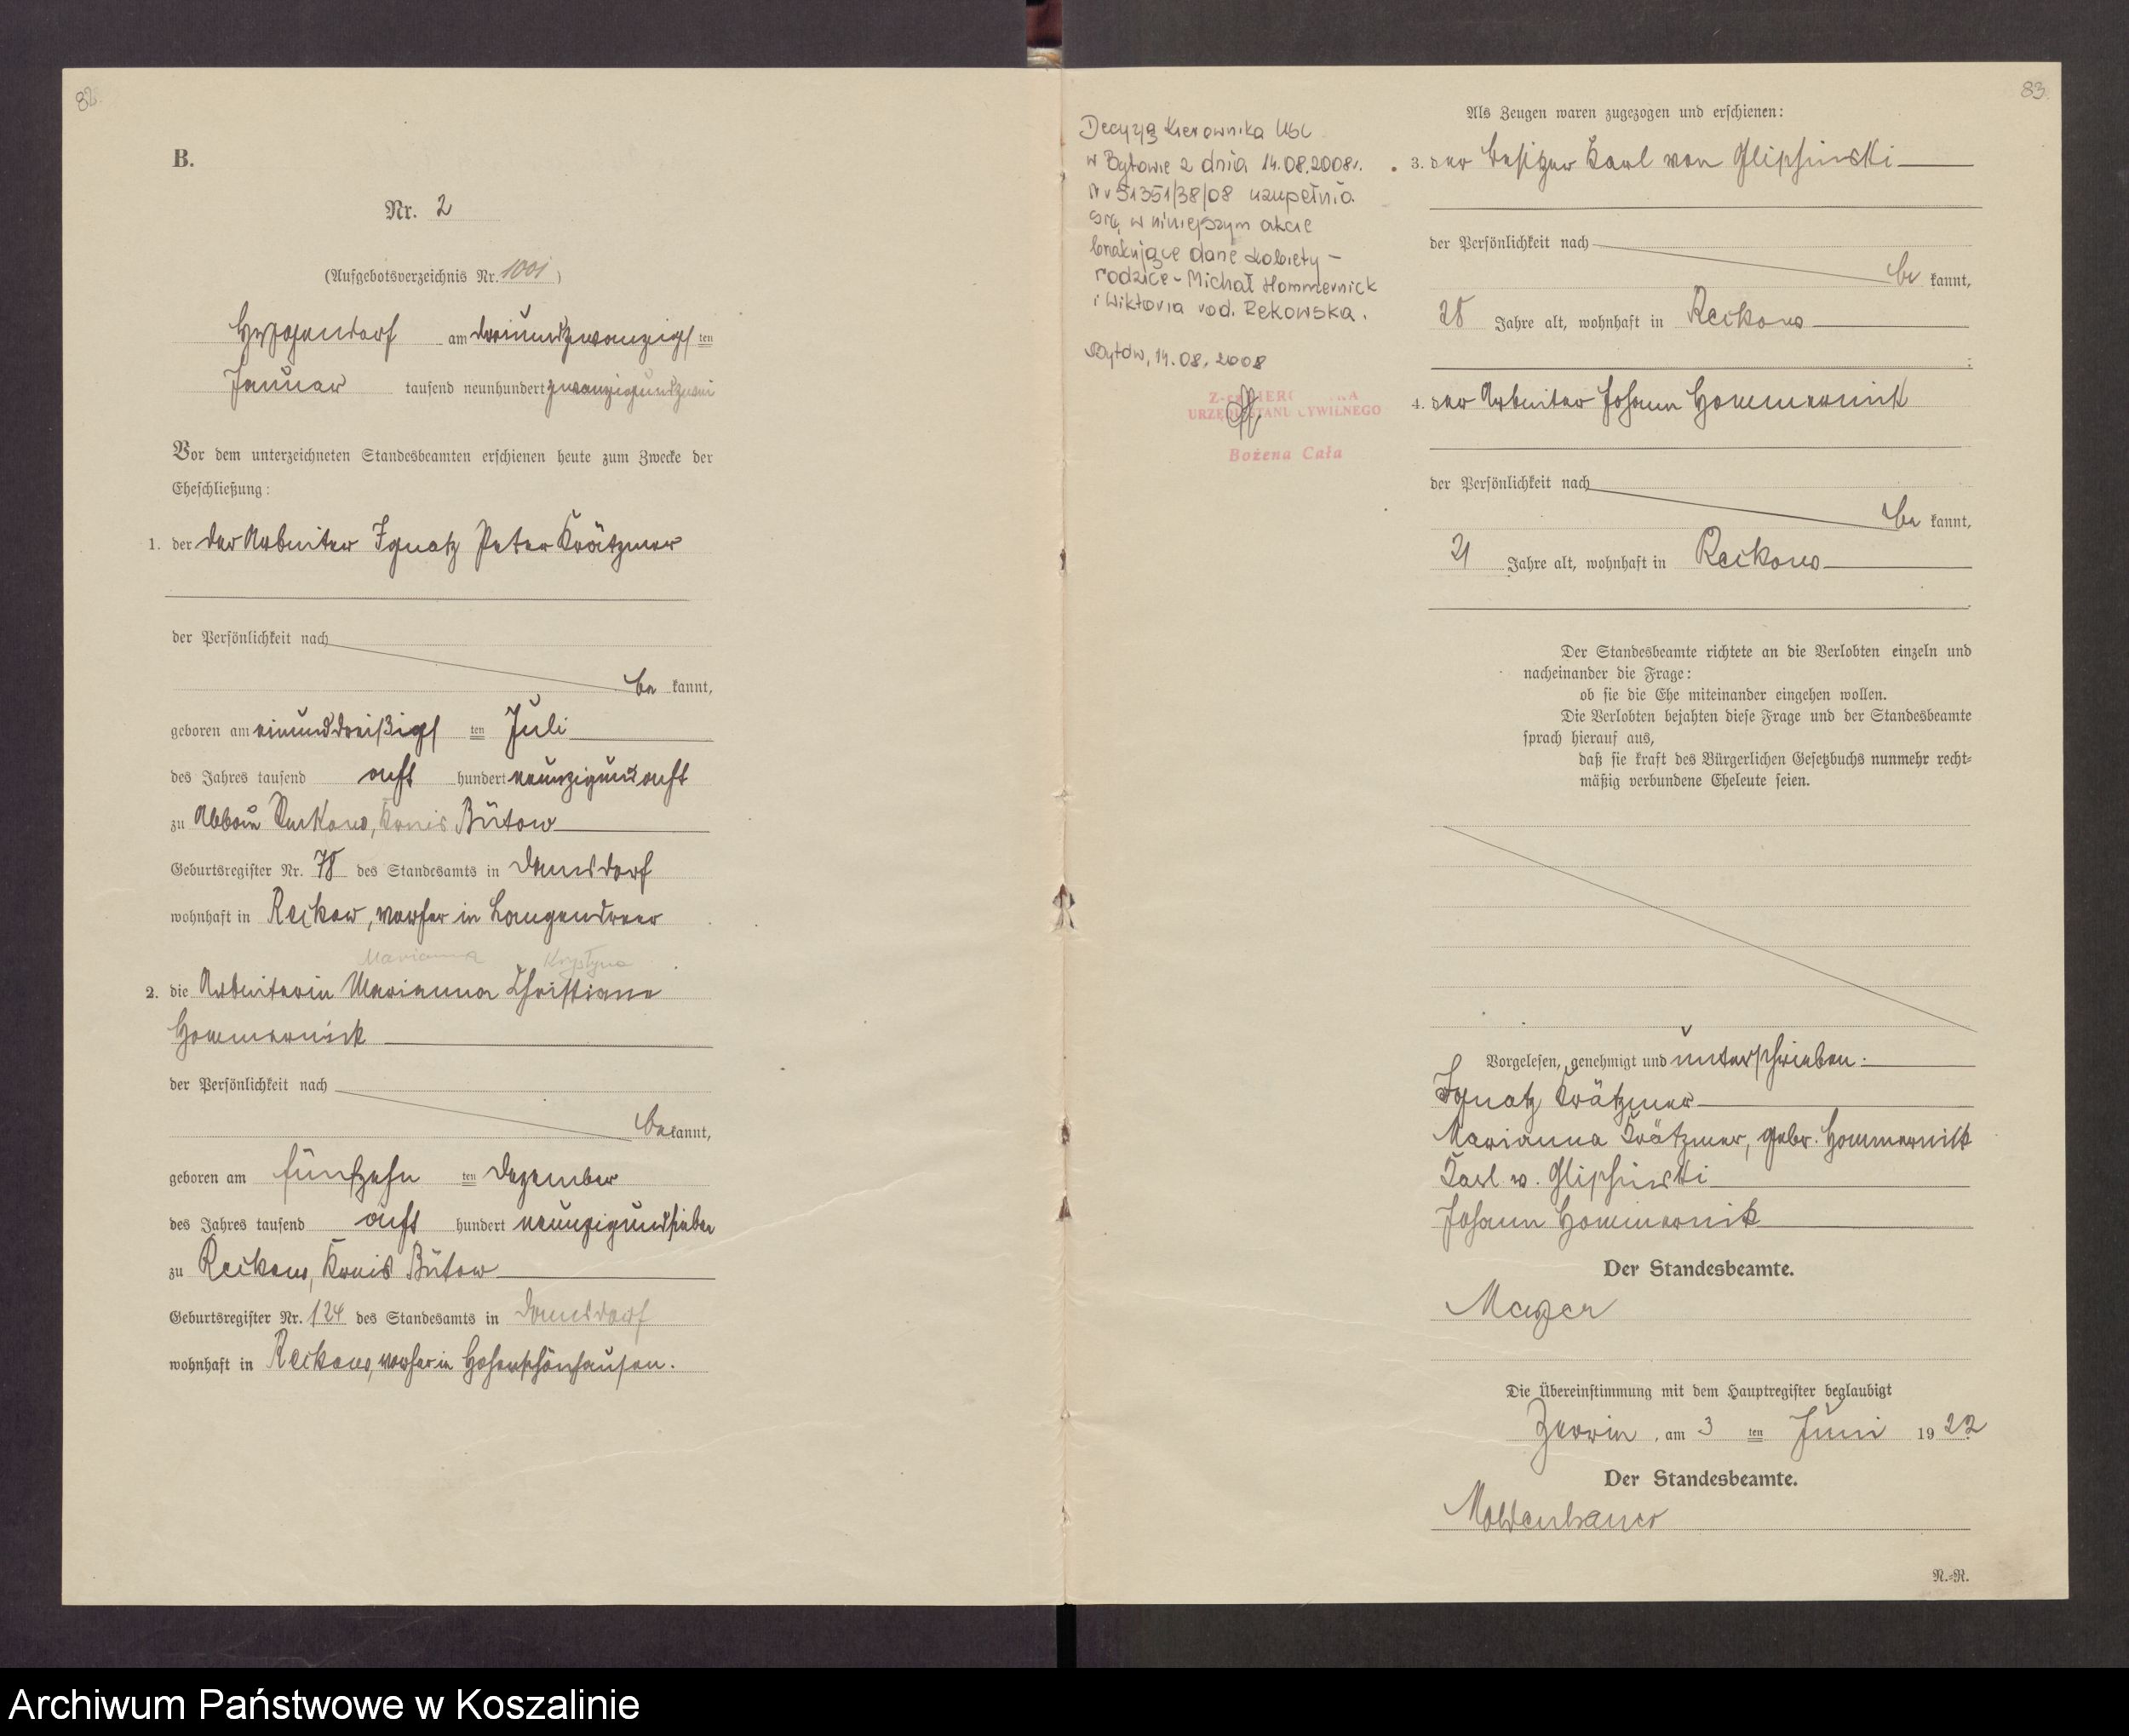 82.
B.
Nr. 2
(Aufgebotsverzeichnis Nr. 1001)
am dreiundzwanzigsten
Januar tausend neunhundert zwanzigundzwei
Vor dem unterzeichneten Standesbeamten erschienen heute zum Zwecke der
Eheschließung:
1. der der Arbeiter Ignatz Peter Krätzmer
der Persönlichkeit nach
be kannt,
geboren am einunddreißigsten Juli
des Jahres tausend acht hundert neunzigundacht
zu Abbau Reckow, Kreis Bütow
Geburtsregister Nr. 78 des Standesamts in Damsdorf
wohnhaft in Reckow, vorher in Langendreer
Marianna Krystyna
2. die Arbeiterin Marianna Christiane
Hommernick
der Persönlichkeit nach
bekannt,
geboren am fünfzehnten Dezember
des Jahres tausend acht hundert neunzigundsieben
zu Reckow, Kreis Bütow
Geburtsregister Nr. 124 des Standesamts in Damsdorf
wohnhaft in Reckow, vorher in Hohenschönhausen.
83.
Decyzją Kierownika USC
w Bytowie z dnia 14.08.2008r.
Nr 51351/38/08 uzupełnia
się w niniejszym akcie
brakujące dane kobiety –
rodzice - Michał Hommernick
i Wiktoria rod. Rekowska.
Bytów, 14.08.2008
URZĘDU STANU CYWILNEGO
Bożena Cała
Als Zeugen waren zugezogen und erschienen:
3. der Besitzer Karl von Glipsinski
der Persönlichkeit nach
be kannt,
28 Jahre alt, wohnhaft in Reckow
4. der Arbeiter Johann Hommernick
der Persönlichkeit nach
be kannt,
21 Jahre alt, wohnhaft in Reckow
Der Standesbeamte richtete an die Verlobten einzeln und
nacheinander die Frage:
ob sie die Ehe miteinander eingehen wollen.
Die Verlobten bejahten diese Frage und der Standesbeamte
sprach hierauf aus,
daß sie kraft des Bürgerlichen Gesetzbuchs nunmehr recht-
mäßig verbundene Eheleute seien.
Vorgelesen, genehmigt und unterschrieben:
Ignatz Krätzmer
Marianna Krätzmer, gebr. Hommernick
Karl v. Glipsinski
Johann Hommernik
Der Standesbeamte.
Mayer
Die Übereinstimmung mit dem Hauptregister beglaubigt
Zerrin, am 3 ten Juni 1922
Der Standesbeamte.
Moldenhauer
N.-R.
Archiwum Państwowe w Koszalinie